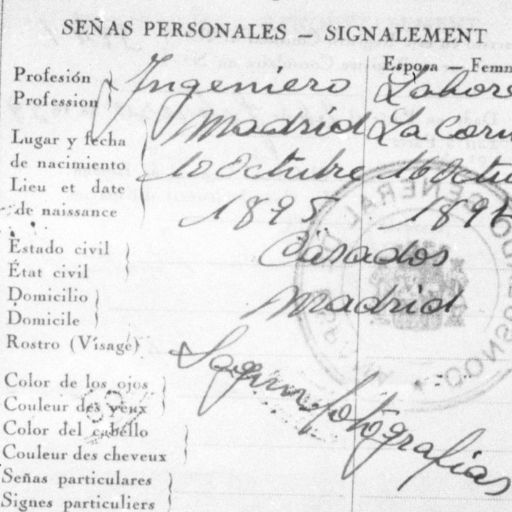 SEÑAS PERSONALES – SIGNALEMENT
Esposa – Femm
Profesión
Profession
Ingeniero Labore
Lugar y fecha
de nacimiento
Lieu et date
de naissance
Madrid La Coru
10 Octubre 16 Octu
1895 189
Estado civil
État civil
Casados
Domicilio
Domicile
Madrid
Rostro (Visage)
Color de los ojos
Couleur des yeux
Color del cabello
Couleur des cheveux
Señas particulares
Signes particuliers
Según fotografías